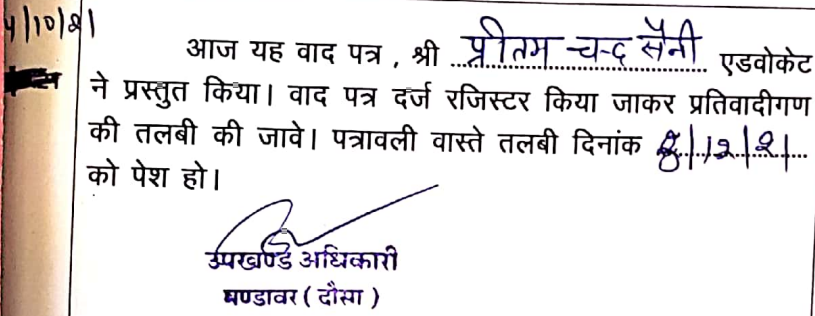 4/10/21
आज यह वाद पत्र , श्री प्रीतम चन्द सैनी एडवोकेट
ने प्रस्तुत किया। वाद पत्र दर्ज रजिस्टर किया जाकर प्रतिवादीगण
की तलबी की जावे। पत्रावली वास्ते तलबी दिनांक 8/12/21
को पेश हो।
उपखण्ड अधिकारी
मण्डावर ( दौसा )